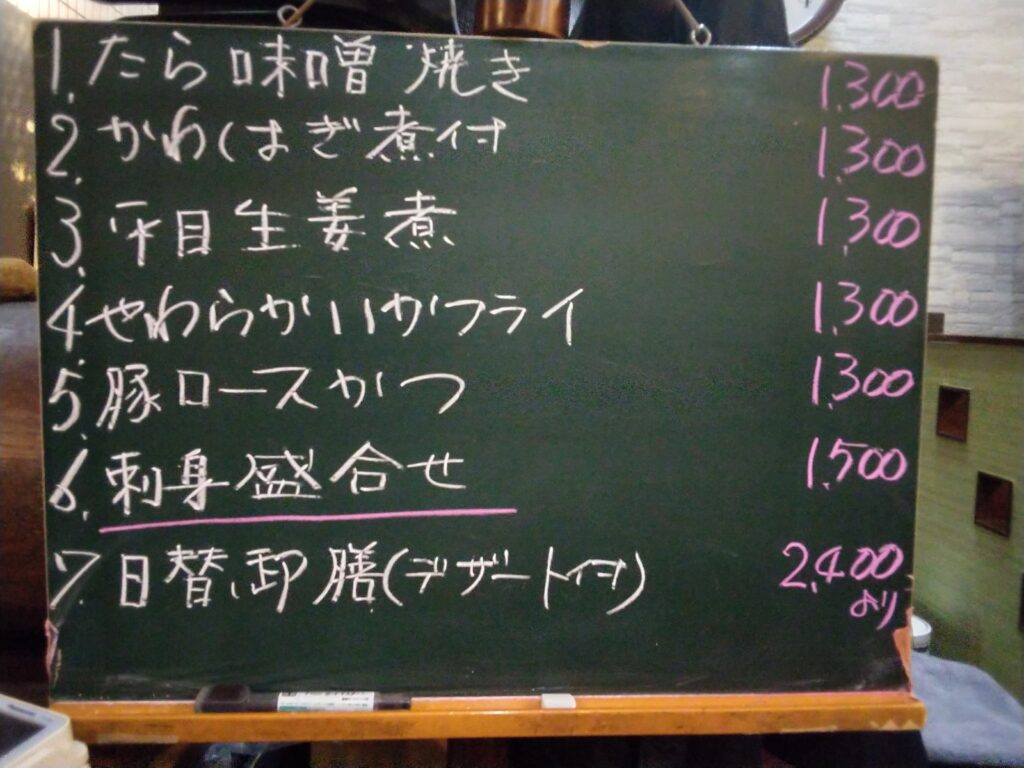 1. たら味噌焼き 1,300
2. かわはぎ煮付 1,300
3. 平目生姜煮 1,300
4. やわらかいかフライ 1,300
5. 豚ロースかつ 1,300
6. 刺身盛合せ 1,500
7. 日替り御膳(デザート付) 2,400
より